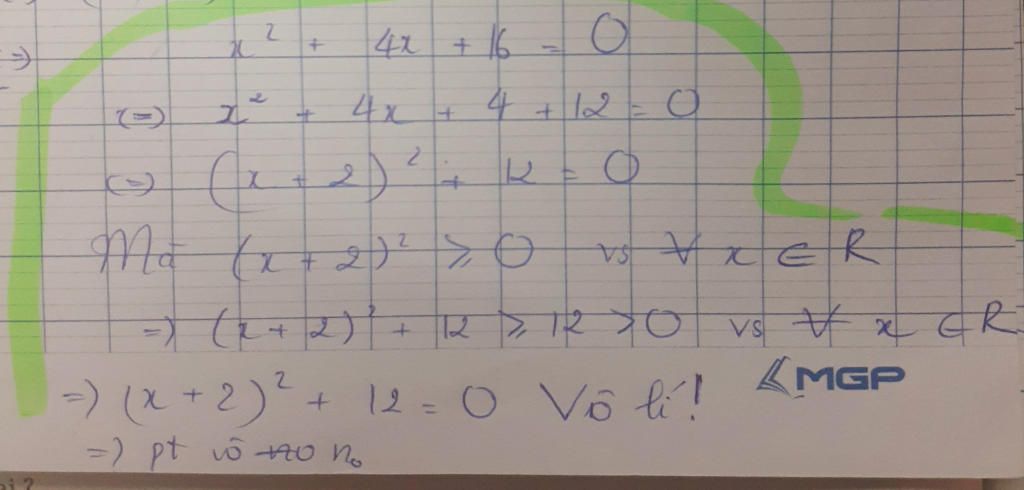 => x² + 4x + 16 = 0
(=) x² + 4x + 4 + 12 = 0
(=) (x + 2)² + 12 = 0
Mà (x + 2)² ⩾ 0 vs ∀ x ∈ R
=) (x + 2)² + 12 ⩾ 12 > 0 vs ∀ x ∈ R
MGP
=) (x + 2)² + 12 = 0 Vô lí!
=) pt vô n₀